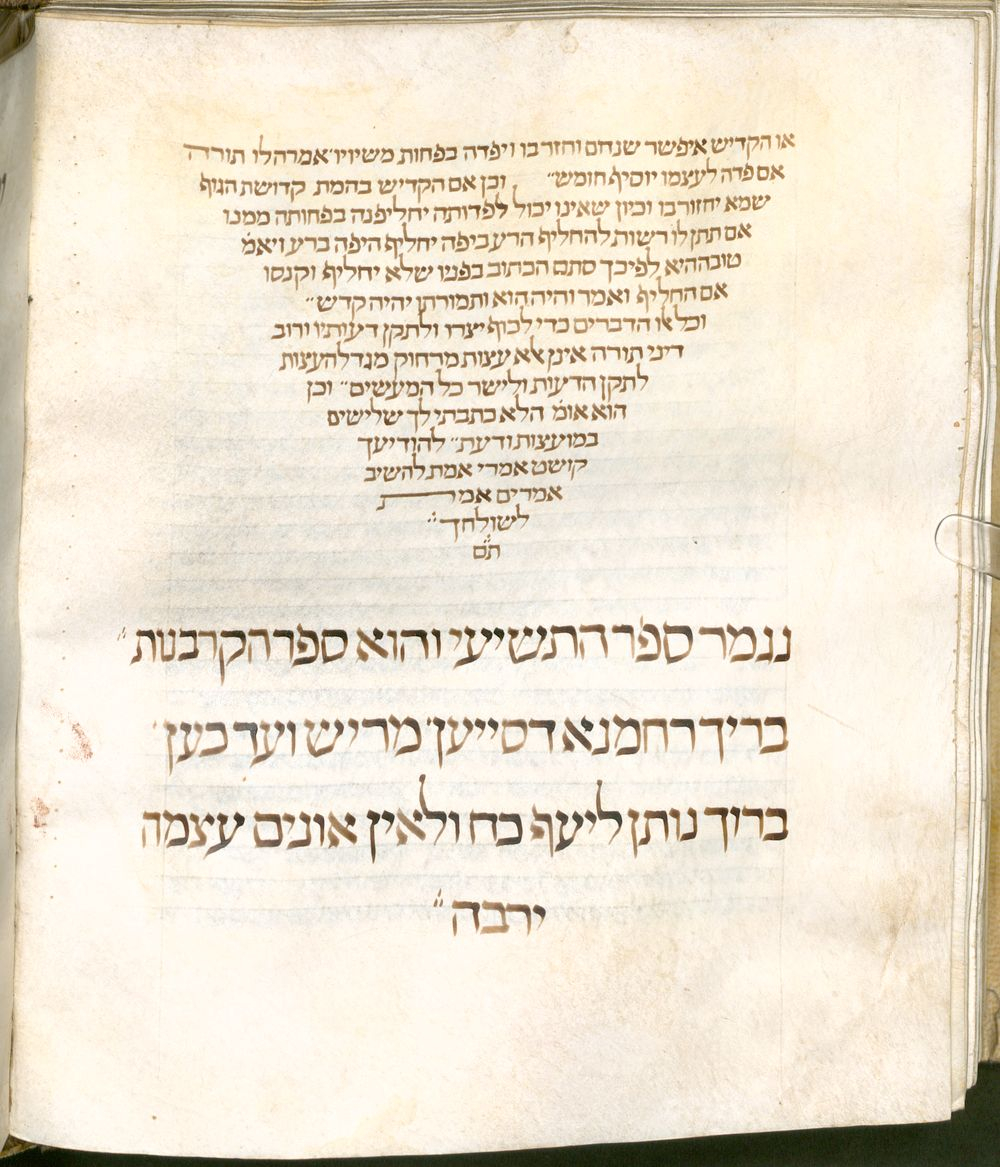 או הקדיש איפשר שנחם וחזר בו ויפדה בפחות משיוויו אמרה לו תורה
אם פדה לעצמו יוסיף חומש״ וכן אם הקדיש בהמת קדושת הגוף
שמא יחזור בו וכיון שאינו יכול לפדותה יחליפנה בפחותה ממנו
אם תתן לו רשות להחליף הרע ביפה יחליף היפה ברע ויאמ׳
טובה היא לפיכך סתם הכתוב בפניו שלא יחליף וקנסו
אם החליף ואמר והיה הוא ותמורתו יהיה קדש״
וכל אלו הדברים כדי לכוף יצרו ולתקן דעותיו ורוב
דיני תורה אינן אלא עצות מרחוק מגדל העצות
לתקן הדעות וליישר כל המעשים״ וכן
הוא אומ׳ הלא כתבתי לך שלישים
במועצות ודעת״ להודיעך
קושט אמרי אמת להשיב
אמרים אמת
לשולחך״
תם
נגמר ספר התשיעי והוא ספר הקרבנות״
בריך רחמנא דסייען׳ מריש ועד כען׳
ברוך נותן ליעף כח ולאין אונים עצמה
ירבה״